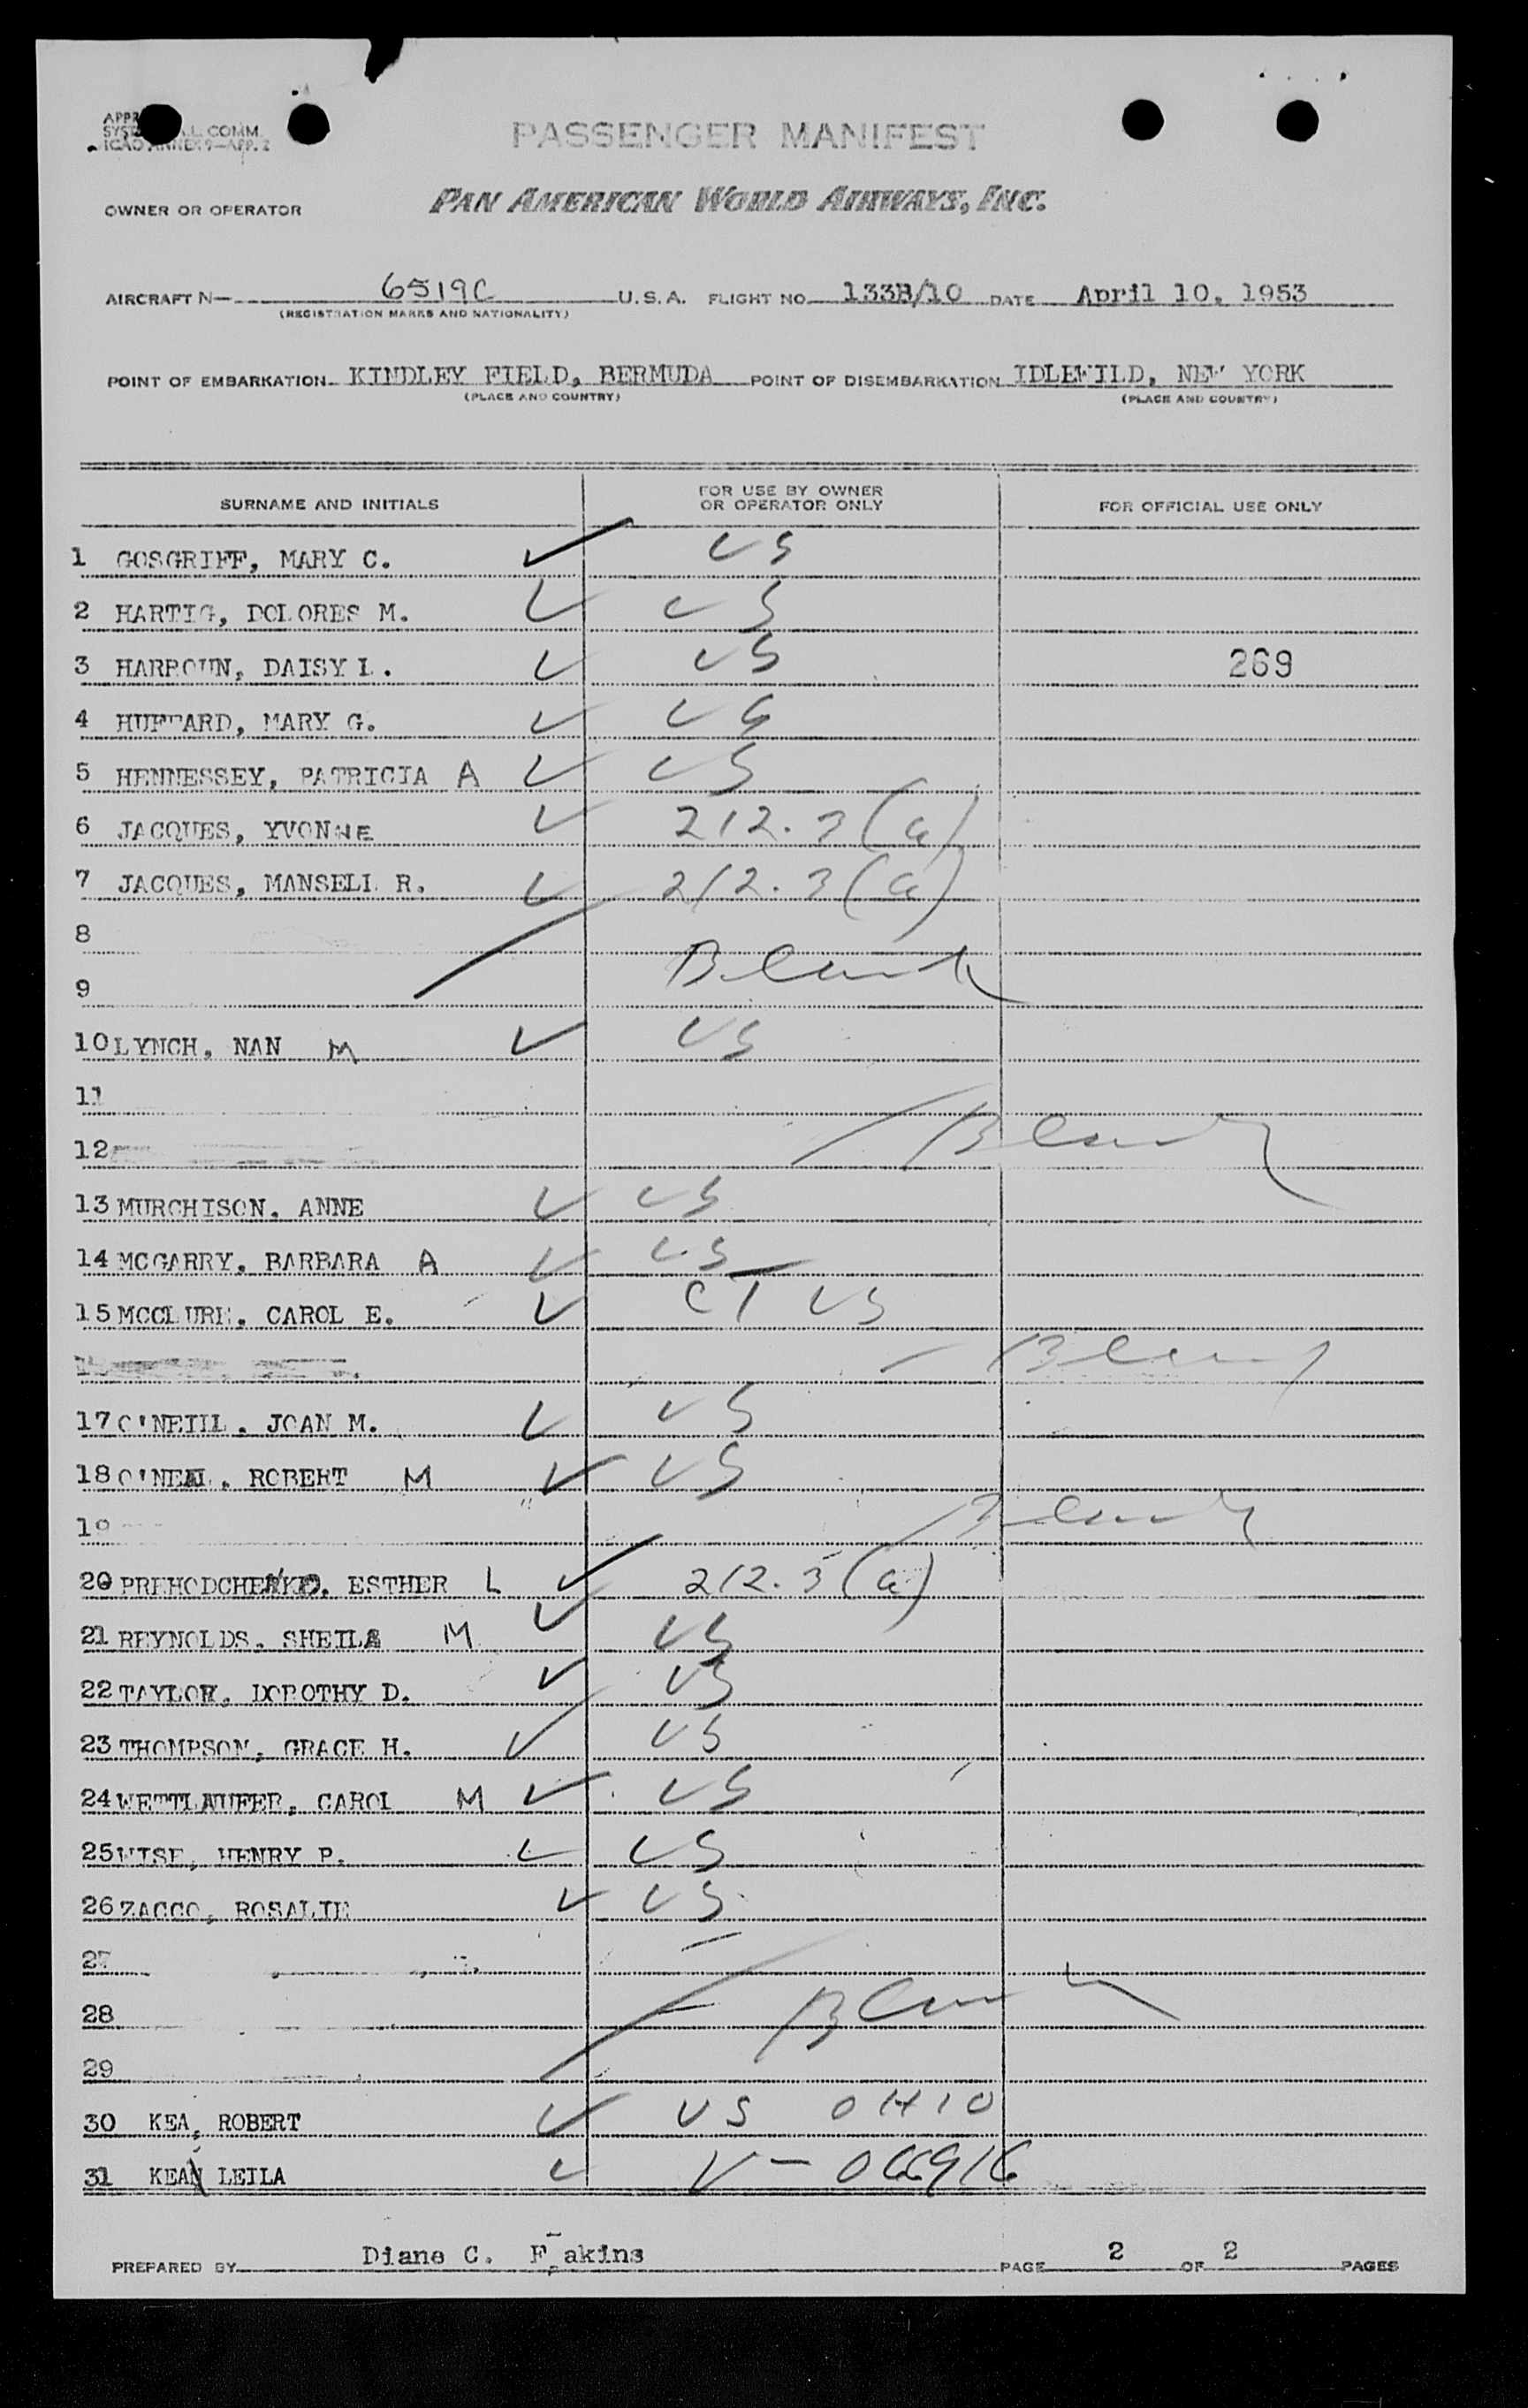 PASSENGER MANIFEST
L. COMM.
ICAO ANNEX 9—APP. 2
OWNER OR OPERATOR PAN AMERICAN WORLD AIRWAYS, INC.
AIRCRAFT N— 6519C U.S.A. FLIGHT NO. 133B/10 DATE April 10, 1953
(REGISTRATION MARKS AND NATIONALITY)
POINT OF EMBARKATION KINDLEY FIELD, BERMUDA POINT OF DISEMBARKATION IDLEWILD, NEW YORK
(PLACE AND COUNTRY) (PLACE AND COUNTRY)
SURNAME AND INITIALS FOR USE BY OWNER OR OPERATOR ONLY FOR OFFICIAL USE ONLY
1 GOSGRIFF, MARY C. ✓ US
2 HARTIG, DOLORES M. ✓ US
3 HARROUN, DAISY L. ✓ US 269
4 HUFTARD, MARY G. ✓ US
5 HENNESSEY, PATRICIA A ✓ US
6 JACQUES, YVONNE ✓ 212.3(a)
7 JACQUES, MANSELL R. ✓ 212.3(a)
8
9 Blank
10 LYNCH, NAN M ✓ US
11
12 Blank
13 MURCHISON, ANNE ✓ US
14 MCGARRY, BARBARA A ✓ US
15 MCCLURE, CAROL E. ✓ CT US
Blank
17 O'NEILL, JOAN M. ✓ US
18 O'NEAL, ROBERT M ✓ US
19 Blank
20 PREHODCHENKO, ESTHER L ✓ 212.3(a)
21 REYNOLDS, SHEILA M ✓ US
22 TAYLOR, DOROTHY D. ✓ US
23 THOMPSON, GRACE H. ✓ US
24 WETTLAUFER, CAROL M ✓ US
25 WISE, HENRY P. ✓ US
26 ZACCO, ROSALIE ✓ US
27
28 Blank
29
30 KEA, ROBERT ✓ US OHIO
31 KEA, LEILA ✓ V-066916
PREPARED BY Diane C. Eakins PAGE 2 OF 2 PAGES